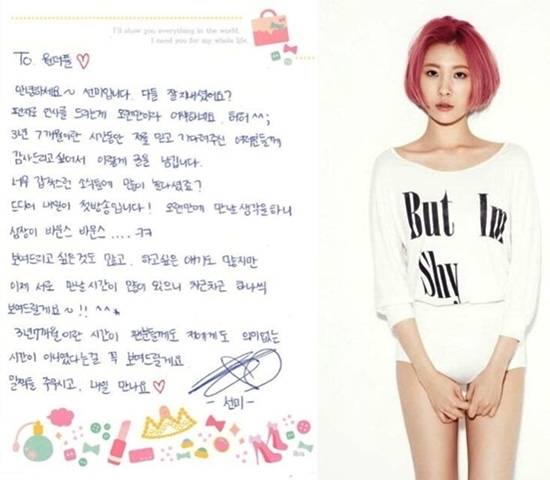 I'll show you everything in the world.
I need you for my whole life.
To. 원더풀 ♡
안녕하세요~ 선미입니다. 다들 잘 지내셨어요?
편지로 인사를 드리는게 오랜만이라 어색하네요. 허허 ^^;
3년 7개월이란 시간동안 저를 믿고 기다려주신 여러분들께
감사드리고 싶어서 이렇게 글을 남깁니다.
너무 갑작스런 소식들에 많이 놀라셨죠?
드디어 내일이 첫방송입니다! 오랜만에 만날 생각을 하니
심장이 바운스 바운스 .... ㅋㅋ
보여드리고 싶은것도 많고, 하고싶은 얘기도 많지만
이제 서로 만날 시간이 많이 있으니 차근차근 하나씩
보여드릴게요~!! ^^*
3년7개월이란 시간이 팬분들께도 저에게도 의미없는
시간이 아니었다는걸 꼭 보여드릴게요.
일찍들 주무시고, 내일 만나요 ♡
- 선미 -
But Im
Shy